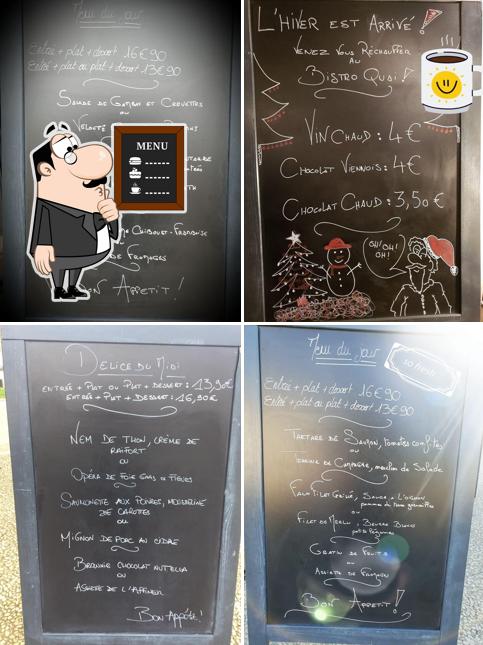 Menu du jour
Entrée + plat + dessert 16€90
Entrée + plat ou plat + dessert 13€90
Salade de Gambas et Crevettes
ou
Velouté
MENU
Chiboust-Framboise
de Fromages
Bon Appetit !
L'Hiver est Arrivé !
Venez vous Réchauffer
au
Bistro Quai !
Vin Chaud : 4€
Chocolat Viennois : 4€
Chocolat Chaud : 3,50€
Oh! Oh!
Oh!
Delice du Midi
entrée + Plat ou Plat + dessert : 13,90€
entrée + Plat + Dessert : 16,90€
Nem de Thon, crème de
raifort
ou
Opéra de Foie Gras & Figues
Saumonette aux Poivres, mousseline
de carottes
ou
Mignon de Porc au cidre
Brownie chocolat nutella
ou
Assiette de l'affineur
Bon Appétit !
Menu du jour
so fresh
Entrée + plat + dessert 16€90
Entrée + plat ou plat + dessert 13€90
Tartare de Saumon, tomates confites
ou
Terrine de Campagne, mesclun de Salade
Faux Filet Grillé, Sauce à l'oignon
pommes de terre grenailles
ou
Filet de Merlu, Beurre Blanc
petits légumes
Gratin de Fruits
ou
Assiette de Fromages
Bon Appetit !